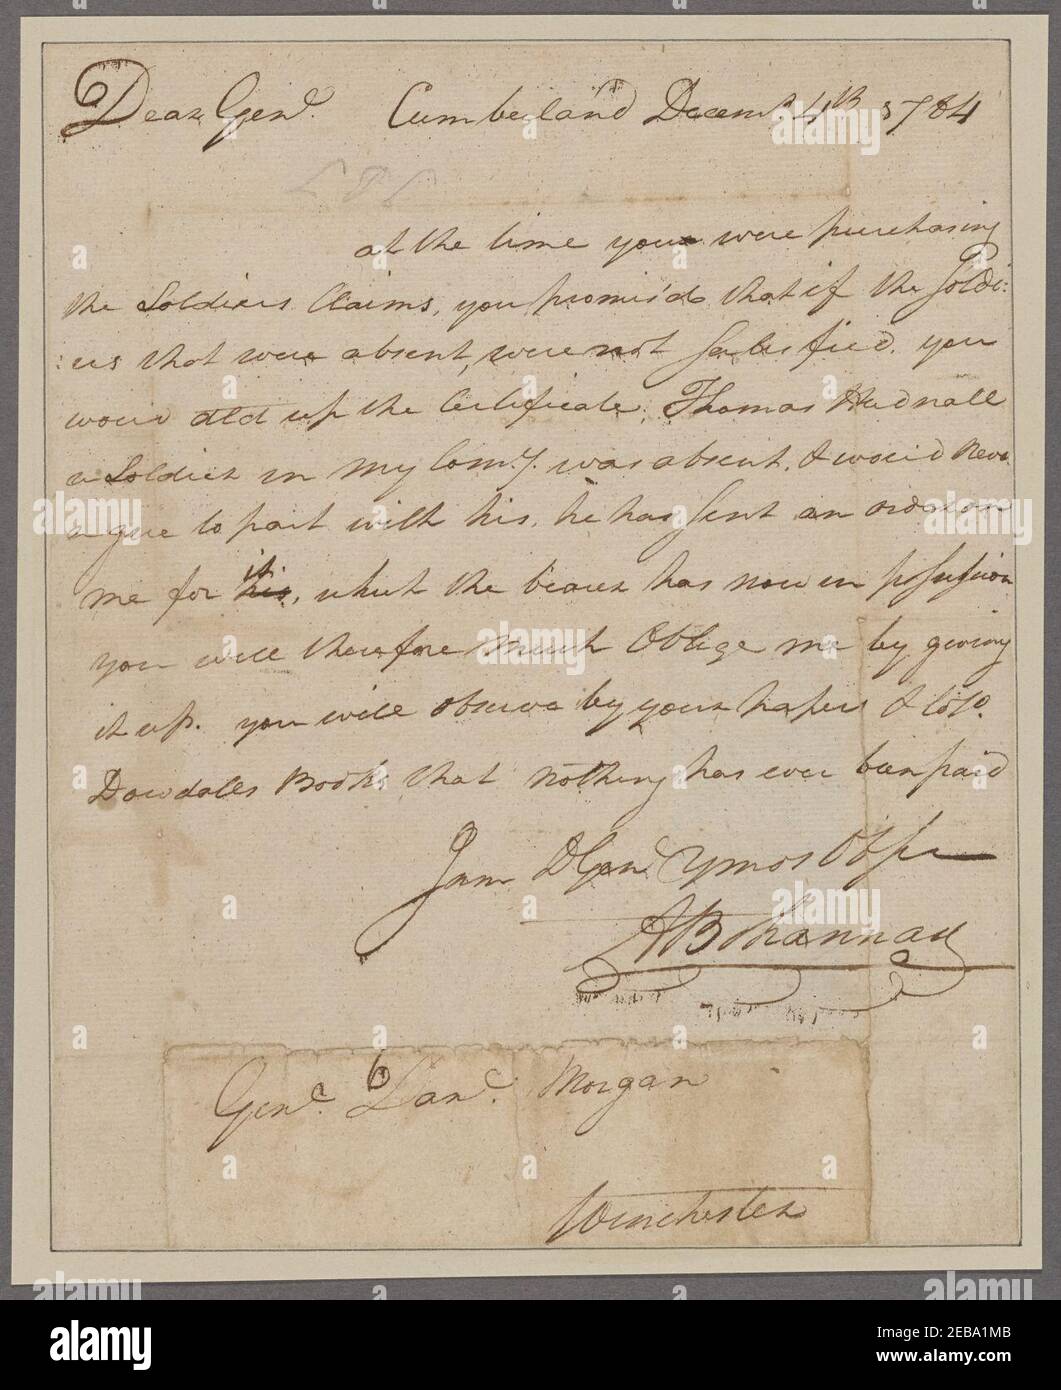 Dear Genl. Cumberland Decemr. 4th 1784
at the time you were purchasing
the Soldiers Claims, you promis'd that if the Soldi:
:ers that were absent, were not Satisfied, you
would up the Certificate. Thomas Hudnall
a Soldier in my Comy. was absent, & would
to part with his, he has Sent an order on
me for his, it which the bearer has now in possession
you will therefore much Oblige me by giving
it up. you will observe by your papers & Colo.
Dowdalls Books that nothing has ever been paid
I am D Genl Ymos Obt
A Bohannan
Genl. Danl. Morgan
Winchester
alamy
Image ID: 2EBA1MB
www.alamy.com